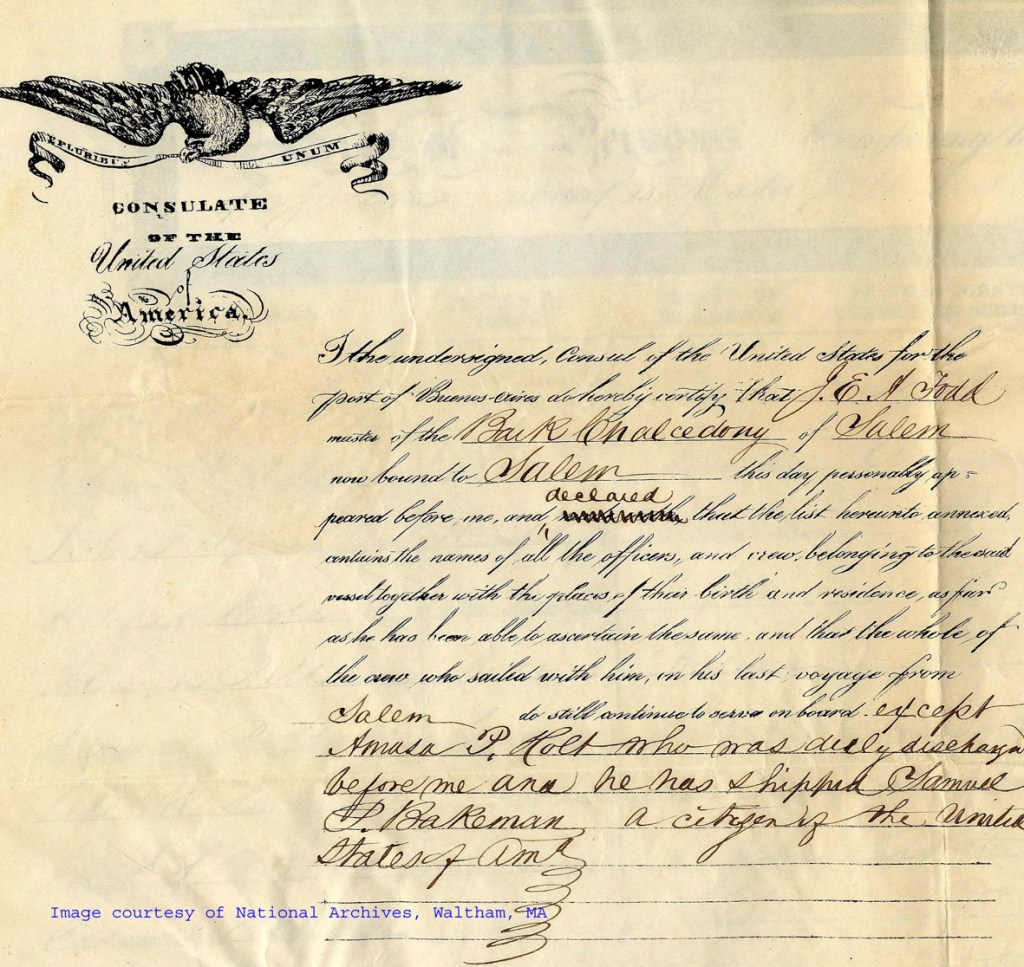 E PLURIBUS UNUM
CONSULATE
OF THE
United States
of
America.
I the undersigned, Consul of the United States for the
port of Buenos-Aires do hereby certify that J. E. A Todd
master of the Bark Chalcedony of Salem
now bound to Salem this day personally ap=
peared before me, and declared that the list hereunto annexed,
contains the names of all the officers, and crew, belonging to the said
vessel together with the places of their birth and residence, as far
as he has been able to ascertain the same. and that the whole of
the crew who sailed with him, on his last voyage from
Salem do still continue to serve on board. except
Amasa P. Holt who was duly discharg
before me and he has shipped Samuel
P. Bakeman a citizen of the United
States of Ama
Image courtesy of National Archives, Waltham, MA